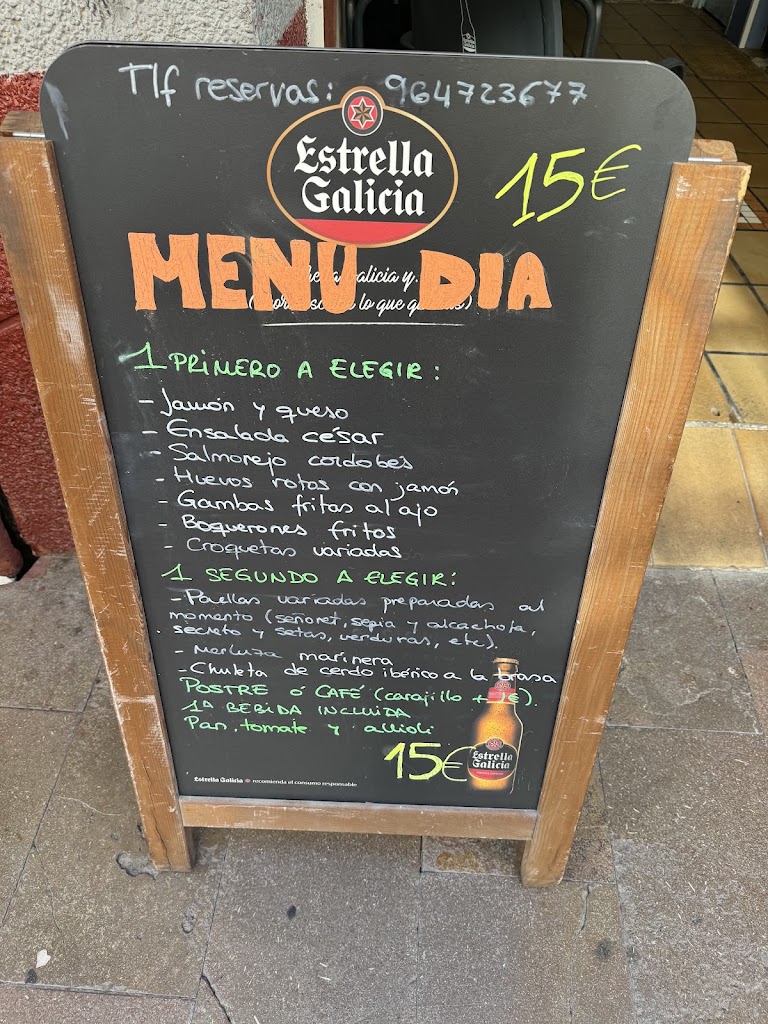 Tlf reservas: 964723677
Estrella
Galicia
15€
MENU DIA
alicia y
lo que
1 PRIMERO A ELEGIR:
- Jamón y queso
- Ensalada césar
- Salmorejo cordobés
- Huevos rotos con jamón
- Gambas fritas al ajo
- Boquerones fritos
- Croquetas variadas
1 SEGUNDO A ELEGIR:
- Paellas variadas preparadas al
momento (señoret, sepia y alcachofa,
secreto y setas, verduras, etc).
- Merluza marinera
- Chuleta de cerdo ibérico a la brasa
POSTRE ó CAFÉ (carajillo + 1€).
1ª BEBIDA INCLUIDA
Pan, tomate y allioli
15€
Estrella
Galicia
Estrella Galicia recomienda el consumo responsable